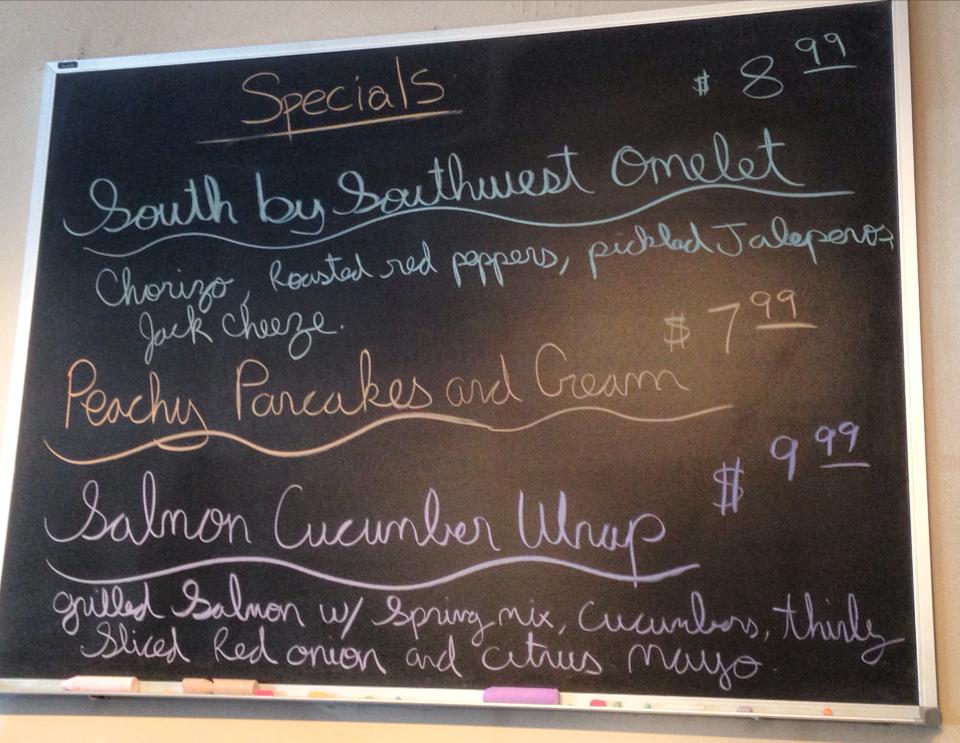 Specials
$ 8 99
South by Southwest Omelet
Chorizo, Roasted red peppers, pickled Jalepenos,
Jack Cheeze.
$ 7 99
Peachy Pancakes and Cream
$ 9 99
Salmon Cucumber Wrap
grilled Salmon w/ Spring mix, Cucumbers, thinly
Sliced Red onion and citrus mayo.